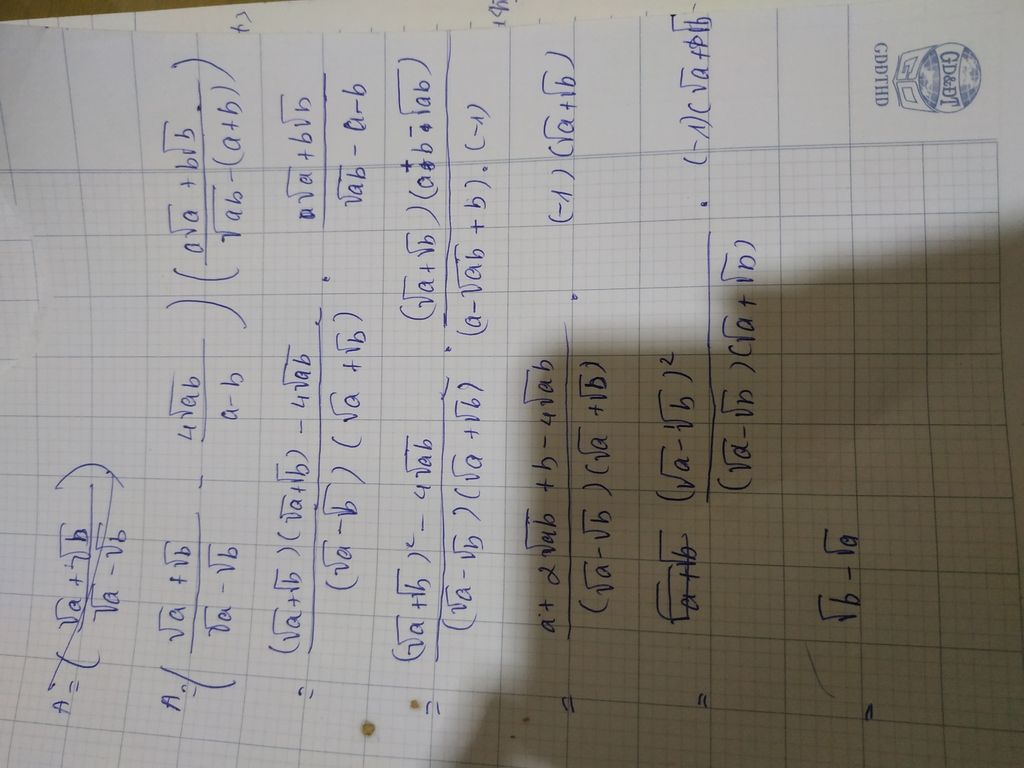 A = ( (√a + √b)/(√a - √b) )
A = ( (√a + √b)/(√a - √b) - 4√ab/(a - b) ) ( (a√a + b√b)/(√ab - (a+b)) )
= ((√a+√b)(√a+√b) - 4√ab)/((√a - √b)(√a + √b)) . (a√a + b√b)/(√ab - a - b)
= ((√a+√b)² - 4√ab)/((√a - √b)(√a + √b)) . ((√a+√b)(a + b - √ab))/((a - √ab + b).(-1))
= (a + 2√ab + b - 4√ab)/((√a - √b)(√a + √b)) . (-1)(√a+√b)
= (√a - √b)²/((√a - √b)(√a + √b)) . (-1)(√a+√b)
= √b - √a
GD&ĐT
GDDTHD